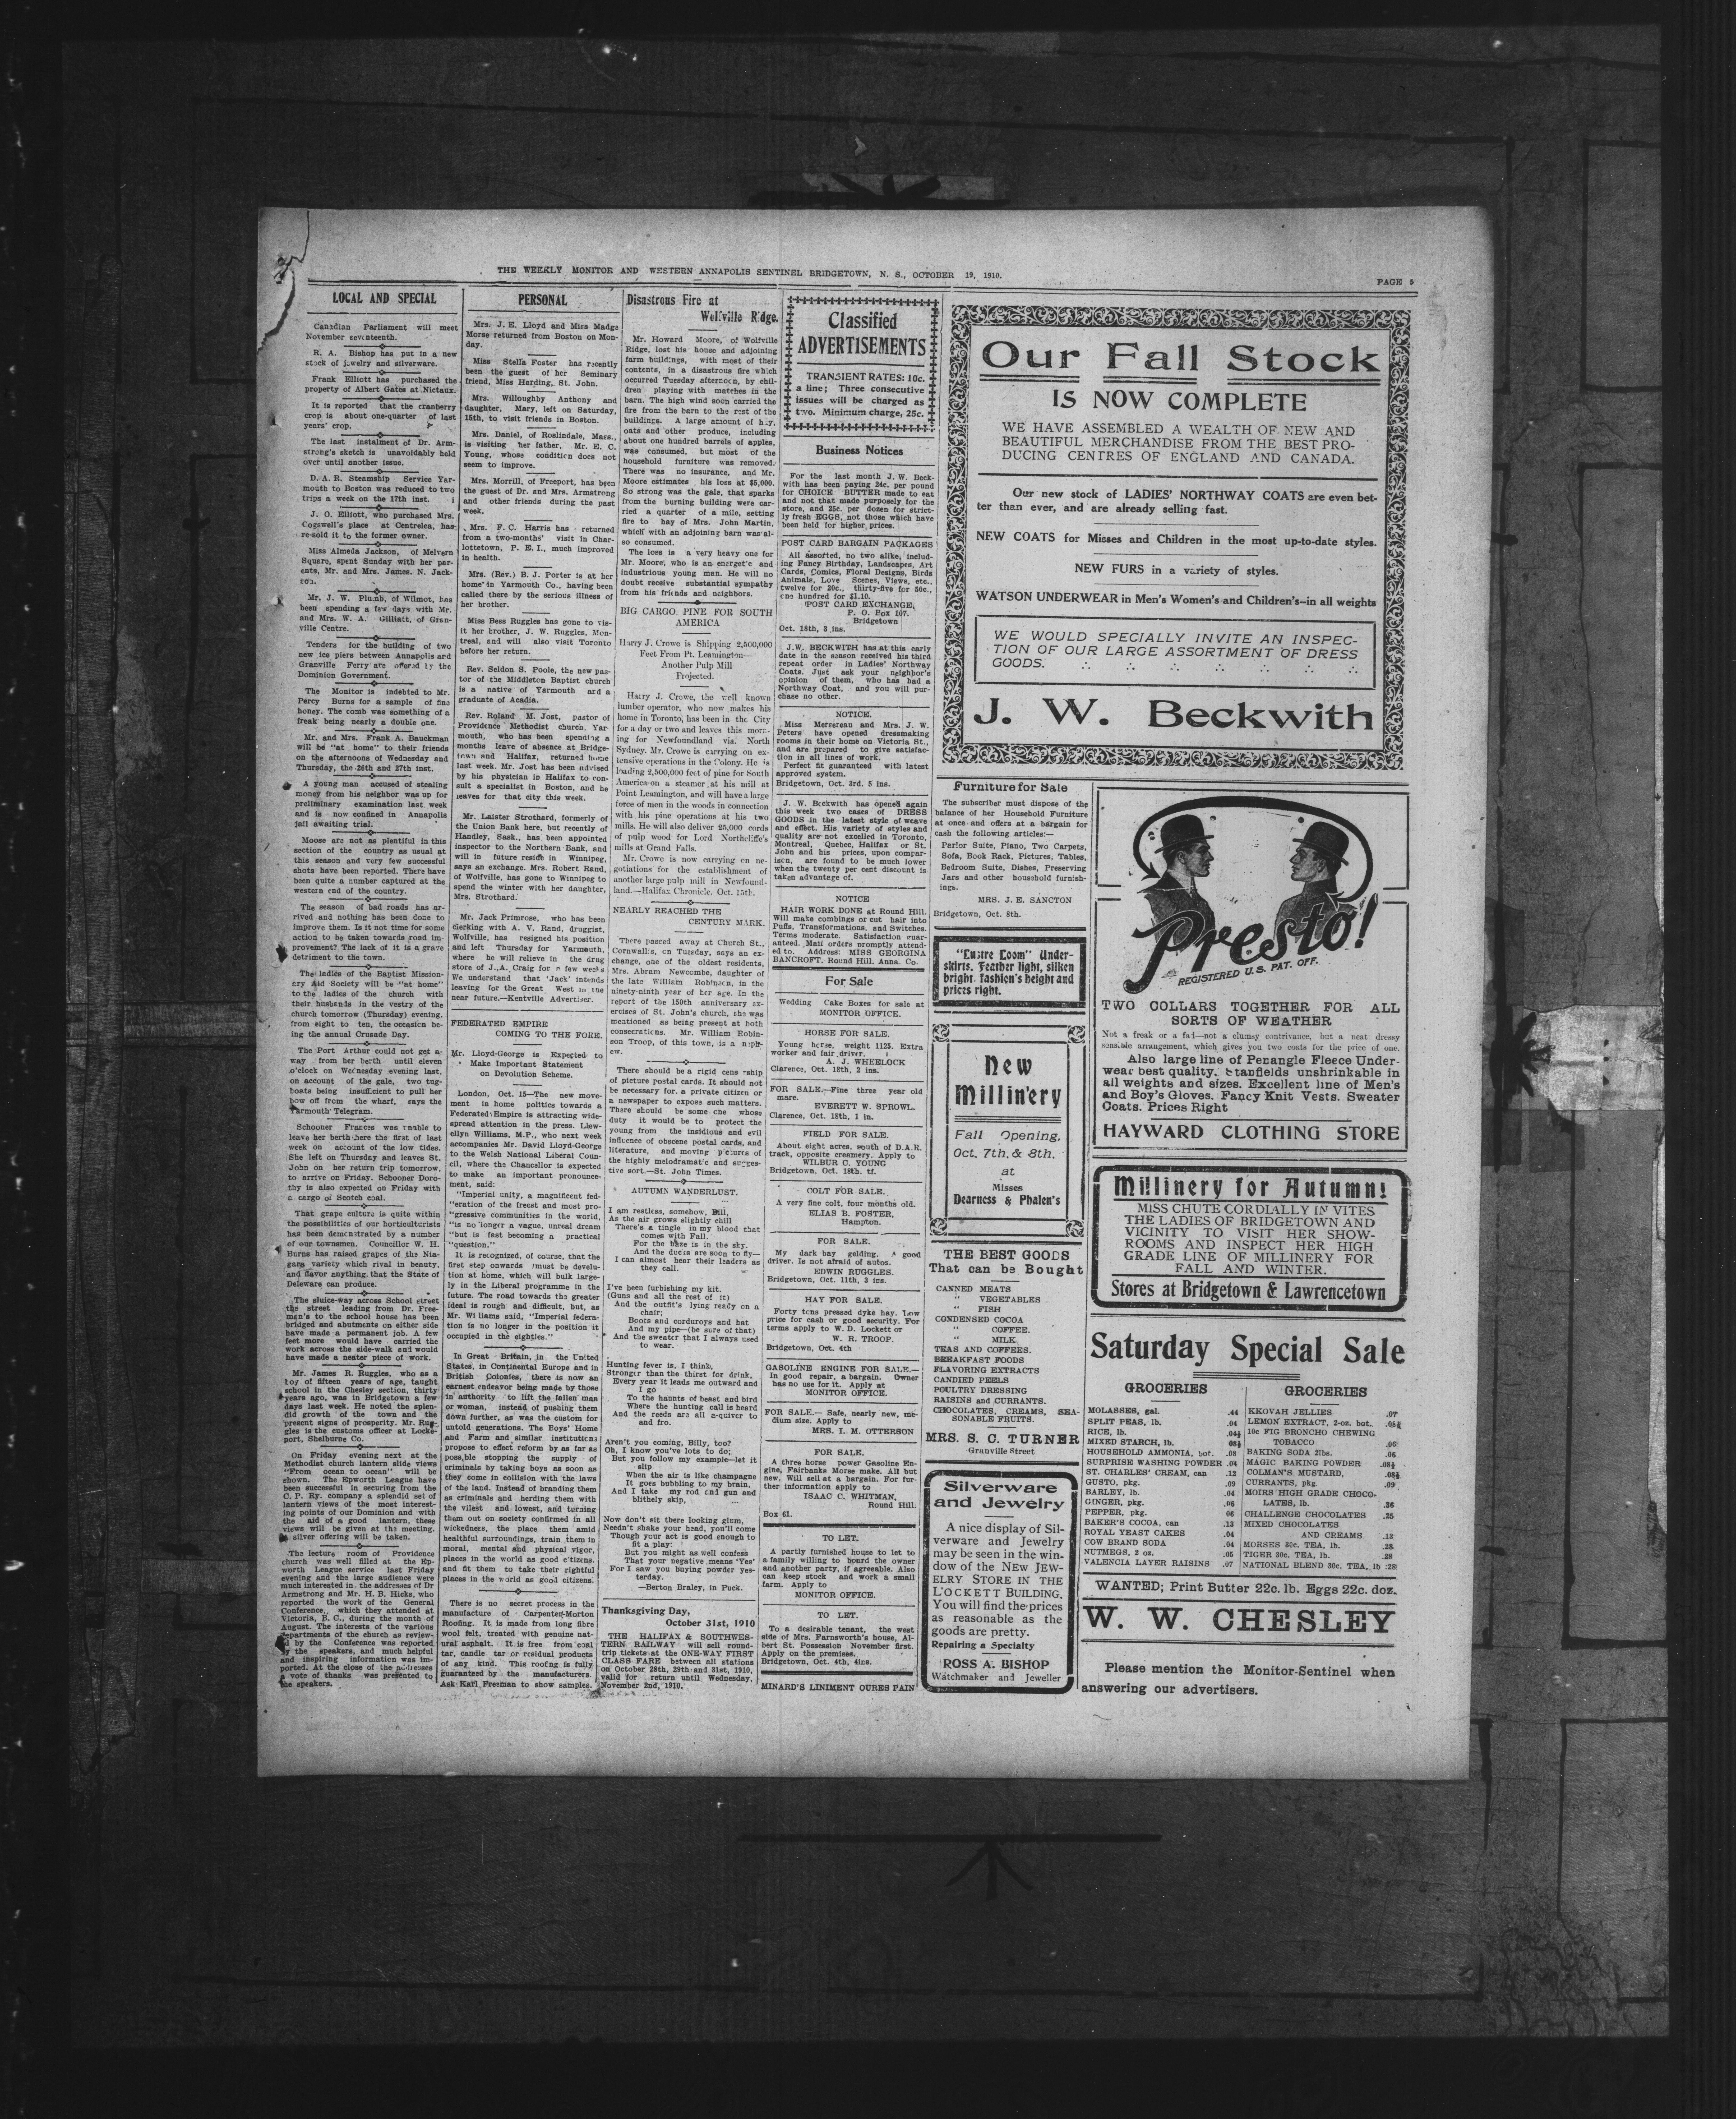 THE WEEKLY MONITOR AND WESTERN ANNAPOLIS SENTINEL BRIDGETOWN, N. S., OCTOBER 19, 1910.
PAGE 5
LOCAL AND SPECIAL
Canadian Parliament will meet
November seventeenth.
R. A. Bishop has put in a new
stock of jewelry and silverware.
Frank Elliott has purchased the
property of Albert Gates at Nictaux.
It is reported that the cranberry
crop is about one-quarter of last
years' crop.
The last instalment of Dr. Arm-
strong's sketch is unavoidably held
over until another issue.
D. A. R. Steamship Service Yar-
mouth to Boston was reduced to two
trips a week on the 17th inst.
J. O. Elliott, who purchased Mrs.
Cogswell's place at Centrelea, has
re-sold it to the former owner.
Miss Almeda Jackson, of Melvern
Square, spent Sunday with her par-
ents, Mr. and Mrs. James. N. Jack-
son.
Mr. J. W. Plumb, of Wilmot, has
been spending a few days with Mr.
and Mrs. W. A. Gilliatt, of Gran-
ville Centre.
Tenders for the building of two
new ice piers between Annapolis and
Granville Ferry are offered by the
Dominion Government.
The Monitor is indebted to Mr.
Percy Burns for a sample of fine
honey. The comb was something of a
freak being nearly a double one.
Mr. and Mrs. Frank A. Bauckman
will be "at home" to their friends
on the afternoons of Wednesday and
Thursday, the 26th and 27th inst.
A young man accused of stealing
money from his neighbor was up for
preliminary examination last week
and is now confined in Annapolis
jail awaiting trial.
Moose are not as plentiful in this
section of the country as usual at
this season and very few successful
shots have been reported. There have
been quite a number captured at the
western end of the country.
The season of bad roads has ar-
rived and nothing has been done to
improve them. Is it not time for some
action to be taken towards road im-
provement? The lack of it is a grave
detriment to the town.
The ladies of the Baptist Mission-
ary Aid Society will be "at home"
to the ladies of the church with
their husbands in the vestry of the
church tomorrow (Thursday) evening,
from eight to ten, the occasion be-
ing the annual Crusade Day.
The Port Arthur could not get a-
way from her berth until eleven
o'clock on Wednesday evening last,
on account of the gale, two tug-
boats being insufficient to pull her
bow off from the wharf, says the
Yarmouth Telegram.
Schooner Frances was unable to
leave her berth here the first of last
week on account of the low tides.
She left on Thursday and leaves St.
John on her return trip tomorrow,
to arrive on Friday. Schooner Doro-
thy is also expected on Friday with
a cargo of Scotch coal.
That grape culture is quite within
the possibilities of our horticulturists
has been demonstrated by a number
of our townsmen. Councillor W. H.
Burns has raised grapes of the Nia-
gara variety which rival in beauty,
and flavor anything that the State of
Deleware can produce.
The sluice-way across School street
the street leading from Dr. Free-
man's to the school house has been
bridged and abutments on either side
have made a permanent job. A few
feet more would have carried the
work across the side-walk and would
have made a neater piece of work.
Mr. James R. Ruggles, who as a
boy of fifteen years of age, taught
school in the Chesley section, thirty
years ago, was in Bridgetown a few
days last week. He noted the splen-
did growth of the town and the
present signs of prosperity. Mr. Rug-
gles is the customs officer at Locke-
port, Shelburne Co.
On Friday evening next at the
Methodist church lantern slide views
"From ocean to ocean" will be
shown. The Epworth League have
been successful in securing from the
C. P. Ry. company a splendid set of
lantern views of the most interest-
ing points of our Dominion and with
the aid of a good lantern, these
views will be given at the meeting.
A silver offering will be taken.
The lecture room of Providence
church was well filled at the Ep-
worth League service last Friday
evening and the large audience were
much interested in the addresses of Dr
Armstrong and Mr. H. B. Hicks, who
reported the work of the General
Conference, which they attended at
Victoria, B. C., during the month of
August. The interests of the various
departments of the church as review-
ed by the Conference was reported
by the speakers, and much helpful
and inspiring information was im-
ported. At the close of the addresses
a vote of thanks was presented to
the speakers.
PERSONAL
Mrs. J. E. Lloyd and Miss Madge
Morse returned from Boston on Mon-
day.
Miss Stella Foster has recently
been the guest of her Seminary
friend, Miss Harding, St. John.
Mrs. Willoughby Anthony and
daughter, Mary, left on Saturday,
15th, to visit friends in Boston.
Mrs. Daniel, of Roslindale, Mass.,
is visiting her father, Mr. E. C.
Young, whose condition does not
seem to improve.
Mrs. Morrill, of Freeport, has been
the guest of Dr. and Mrs. Armstrong
and other friends during the past
week.
Mrs. F. C. Harris has returned
from a two-months' visit in Char-
lottetown, P. E. I., much improved
in health.
Mrs. (Rev.) B. J. Porter is at her
home in Yarmouth Co., having been
called there by the serious illness of
her brother.
Miss Bess Ruggles has gone to vis-
it her brother, J. W. Ruggles, Mon-
treal, and will also visit Toronto
before her return.
Rev. Seldon S. Poole, the new pas-
tor of the Middleton Baptist church
is a native of Yarmouth and a
graduate of Acadia.
Rev. Roland M. Jost, pastor of
Providence Methodist church, Yar-
mouth, who has been spending a
months leave of absence at Bridge-
town and Halifax, returned home
last week. Mr. Jost has been advised
by his physician in Halifax to con-
sult a specialist in Boston, and he
leaves for that city this week.
Mr. Laister Strothard, formerly of
the Union Bank here, but recently of
Handley, Sask., has been appointed
inspector to the Northern Bank, and
will in future reside in Winnipeg,
says an exchange. Mrs. Robert Rand,
of Wolfville, has gone to Winnipeg to
spend the winter with her daughter,
Mrs. Strothard.
Mr. Jack Primrose, who has been
clerking with A. V. Rand, druggist,
Wolfville, has resigned his position
and left Thursday for Yarmouth,
where he will relieve in the drug
store of J. A. Craig for a few weeks
We understand that 'Jack' intends
leaving for the Great West in the
near future.—Kentville Advertiser.
FEDERATED EMPIRE
COMING TO THE FORE.
Mr. Lloyd-George is Expected to
Make Important Statement
on Devolution Scheme.
London, Oct. 15—The new move-
ment in home politics towards a
Federated Empire is attracting wide-
spread attention in the press. Llew-
ellyn Williams, M.P., who next week
accompanies Mr. David Lloyd-George
to the Welsh National Liberal Coun-
cil, where the Chancellor is expected
to make an important pronounce-
ment, said:
"Imperial unity, a magnificent fed-
"eration of the freest and most pro-
"gressive communities in the world,
"is no longer a vague, unreal dream
"but is fast becoming a practical
"question."
It is recognized, of course, that the
first step onwards must be develu-
tion at home, which will bulk large-
ly in the Liberal programme in the
future. The road towards the greater
ideal is rough and difficult, but, as
Mr. Williams said, "Imperial federa-
tion is no longer in the position it
occupied in the eighties."
In Great Britain, in the United
States, in Continental Europe and in
British Colonies, there is now an
earnest endeavor being made by those
in authority to lift the fallen man
or woman, instead of pushing them
down further, as was the custom for
untold generations. The Boys' Home
and Farm and similar institutions
propose to effect reform by as far as
possible stopping the supply of
criminals by taking boys as soon as
they come in collision with the laws
of the land. Instead of branding them
as criminals and herding them with
the vilest and lowest, and turning
them out on society confirmed in all
wickedness, the place them amid
healthful surroundings, train them in
moral, mental and physical vigor,
places in the world as good citizens,
and fit them to take their rightful
places in the world as good citizens.
There is no secret process in the
manufacture of Carpenter-Morton
Roofing. It is made from long fibre
wool felt, treated with genuine nat-
ural asphalt. It is free from coal
tar, candle tar or residual products
of any kind. This roofing is fully
guaranteed by the manufacturers.
Ask Karl Freeman to show samples.
Disastrous Fire at
Wolfville Ridge.
Mr. Howard Moore, of Wolfville
Ridge, lost his house and adjoining
farm buildings, with most of their
contents, in a disastrous fire which
occurred Tuesday afternoon, by chil-
dren playing with matches in the
barn. The high wind soon carried the
fire from the barn to the rest of the
buildings. A large amount of hay,
oats and other produce, including
about one hundred barrels of apples,
was consumed, but most of the
household furniture was removed.
There was no insurance, and Mr.
Moore estimates his loss at $5,000.
So strong was the gale, that sparks
from the burning building were car-
ried a quarter of a mile, setting
fire to hay of Mrs. John Martin,
which with an adjoining barn was al-
so consumed.
The loss is a very heavy one for
Mr. Moore, who is an energetic and
industrious young man. He will no
doubt receive substantial sympathy
from his friends and neighbors.
BIG CARGO PINE FOR SOUTH
AMERICA
Harry J. Crowe is Shipping 2,500,000
Feet From Pt. Leamington—
Another Pulp Mill
Projected.
Harry J. Crowe, the well known
lumber operator, who now makes his
home in Toronto, has been in the City
for a day or two and leaves this morn-
ing for Newfoundland via. North
Sydney. Mr. Crowe is carrying on ex-
tensive operations in the Colony. He is
loading 2,500,000 feet of pine for South
America on a steamer at his mill at
Point Leamington, and will have a large
force of men in the woods in connection
with his pine operations at his two
mills. He will also deliver 25,000 cords
of pulp wood for Lord Northcliffe's
mills at Grand Falls.
Mr. Crowe is now carrying on ne-
gotiations for the establishment of
another large pulp mill in Newfound-
land.—Halifax Chronicle. Oct. 15th.
NEARLY REACHED THE
CENTURY MARK.
There passed away at Church St.,
Cornwallis, on Tuesday, says an ex-
change, one of the oldest residents,
Mrs. Abram Newcombe, daughter of
the late William Robinson, in the
ninety-ninth year of her age. In the
report of the 150th anniversary ex-
ercises of St. John's church, she was
mentioned as being present at both
consecrations. Mr. William Robin-
son Troop, of this town, is a neph-
ew.
There should be a rigid censorship
of picture postal cards. It should not
be necessary for a private citizen or
a newspaper to expose such matters.
There should be some one whose
duty it would be to protect the
young from the insidious and evil
influence of obscene postal cards, and
literature, and moving pictures of
the highly melodramatic and sugges-
tive sort.—St. John Times.
AUTUMN WANDERLUST.
I am restless, somehow, Bill,
As the air grows slightly chill
There's a tingle in my blood that
comes with Fall.
For the haze is in the sky,
And the ducks are soon to fly—
I can almost hear their leaders as
they call.
I've been furbishing my kit.
(Guns and all the rest of it)
And the outfit's lying ready on a
chair;
Boots and corduroys and hat
And my pipe—(be sure of that)
And the sweater that I always used
to wear.
Hunting fever is, I think,
Stronger than the thirst for drink,
Every year it leads me outward and
I go
To the haunts of beast and bird
Where the hunting call is heard
And the reeds are all a-quiver to
and fro.
Aren't you coming, Billy, too?
Oh, I know you've lots to do;
But you follow my example—let it
slip
When the air is like champagne
It goes bubbling to my brain,
And I take my rod and gun and
blithely skip,
Now don't sit there looking glum,
Needn't shake your head, you'll come
Though your act is good enough to
fit a play:
But you might as well confess
That your negative means 'Yes'
For I saw you buying powder yes-
terday.
—Berton Braley, in Puck.
Thanksgiving Day,
October 31st, 1910
THE HALIFAX & SOUTHWES-
TERN RAILWAY will sell round-
trip tickets at the ONE-WAY FIRST
CLASS FARE between all stations
on October 28th, 29th and 31st, 1910,
valid for return until Wednesday,
November 2nd, 1910.
Classified
ADVERTISEMENTS
TRANSIENT RATES: 10c.
a line; Three consecutive
issues will be charged as
two. Minimum charge, 25c.
Business Notices
For the last month J. W. Beck-
with has been paying 24c. per pound
for CHOICE BUTTER made to eat
and not that made purposely for the
store, and 25c. per dozen for strict-
ly fresh EGGS, not those which have
been held for higher prices.
POST CARD BARGAIN PACKAGES
All assorted, no two alike, includ-
ing Fancy Birthday, Landscapes, Art
Cards, Comics, Floral Designs, Birds
Animals, Love Scenes, Views, etc.,
twelve for 20c., thirty-five for 50c.,
one hundred for $1.10.
POST CARD EXCHANGE,
P. O. Box 107.
Bridgetown
Oct. 18th, 3 ins.
J.W. BECKWITH has at this early
date in the season received his third
repeat order in Ladies' Northway
Coats. Just ask your neighbor's
opinion of them, who has had a
Northway Coat, and you will pur-
chase no other.
NOTICE.
Miss Mersereau and Mrs. J. W.
Peters have opened dressmaking
rooms in their home on Victoria St.,
and are prepared to give satisfac-
tion in all lines of work.
Perfect fit guaranteed with latest
approved system.
Bridgetown, Oct. 3rd. 5 ins.
J. W. Beckwith has opened again
this week two cases of DRESS
GOODS in the latest style of weave
and effect. His variety of styles and
quality are not excelled in Toronto,
Montreal, Quebec, Halifax or St.
John and his prices, upon compar-
ison, are found to be much lower
when the twenty per cent discount is
taken advantage of.
NOTICE
HAIR WORK DONE at Round Hill.
Will make combings or cut hair into
Puffs, Transformations, and Switches.
Terms moderate. Satisfaction guar-
anteed. Mail orders promptly attend-
ed to. Address: MISS GEORGINA
BANCROFT, Round Hill, Anna. Co.
For Sale
Wedding Cake Boxes for sale at
MONITOR OFFICE.
HORSE FOR SALE.
Young horse, weight 1125. Extra
worker and fair driver.
A. J. WHEELOCK
Clarence, Oct. 18th, 2 ins.
FOR SALE.—Fine three year old
mare.
EVERETT W. SPROWL.
Clarence, Oct. 18th, 1 in.
FIELD FOR SALE.
About eight acres, south of D.A.R.
track, opposite creamery. Apply to
WILBUR C. YOUNG
Bridgetown, Oct. 18th. tf.
COLT FOR SALE.
A very fine colt, four months old.
ELIAS B. FOSTER,
Hampton.
FOR SALE.
My dark bay gelding. A good
driver. Is not afraid of autos.
EDWIN RUGGLES.
Bridgetown, Oct. 11th, 3 ins.
HAY FOR SALE.
Forty tons pressed dyke hay. Low
price for cash or good security. For
terms apply to W. D. Lockett or
W. R. TROOP.
Bridgetown, Oct. 4th
GASOLINE ENGINE FOR SALE.—
In good repair, a bargain. Owner
has no use for it. Apply at
MONITOR OFFICE.
FOR SALE.— Safe, nearly new, me-
dium size. Apply to
MRS. I. M. OTTERSON
FOR SALE.
A three horse power Gasoline En-
gine, Fairbanks Morse make. All but
new. Will sell at a bargain. For fur-
ther information apply to
ISAAC C. WHITMAN,
Round Hill.
Box 61.
TO LET.
A partly furnished house to let to
a family willing to board the owner
and another party, if agreeable. Also
can keep stock and work a small
farm. Apply to
MONITOR OFFICE.
TO LET.
To a desirable tenant, the west
side of Mrs. Farnsworth's house, Al-
bert St. Possession November first.
Apply on the premises.
Bridgetown, Oct. 4th, 4ins.
MINARD'S LINIMENT CURES PAIN
Our Fall Stock
IS NOW COMPLETE
WE HAVE ASSEMBLED A WEALTH OF NEW AND
BEAUTIFUL MERCHANDISE FROM THE BEST PRO-
DUCING CENTRES OF ENGLAND AND CANADA.
Our new stock of LADIES' NORTHWAY COATS are even bet-
ter than ever, and are already selling fast.
NEW COATS for Misses and Children in the most up-to-date styles.
NEW FURS in a variety of styles.
WATSON UNDERWEAR in Men's Women's and Children's--in all weights
WE WOULD SPECIALLY INVITE AN INSPEC-
TION OF OUR LARGE ASSORTMENT OF DRESS
GOODS. ∴ ∴ ∴ ∴ ∴ ∴ ∴
J. W. Beckwith
Furniture for Sale
The subscriber must dispose of the
balance of her Household Furniture
at once and offers at a bargain for
cash the following articles:—
Parlor Suite, Piano, Two Carpets,
Sofa, Book Rack, Pictures, Tables,
Bedroom Suite, Dishes, Preserving
Jars and other household furnish-
ings.
MRS. J. E. SANCTON
Bridgetown, Oct. 8th.
"Lustre Loom" Under-
skirts. Feather light, silken
bright, fashion's height and
prices right.
New
Millinery
Fall Opening,
Oct. 7th. & 8th.
at
Misses
Dearness & Phalen's
THE BEST GOODS
That can be Bought
CANNED MEATS
" VEGETABLES
" FISH
CONDENSED COCOA
" COFFEE.
" MILK.
TEAS AND COFFEES.
BREAKFAST FOODS
FLAVORING EXTRACTS
CANDIED PEELS
POULTRY DRESSING
RAISINS and CURRANTS.
CHOCOLATES, CREAMS, SEA-
SONABLE FRUITS.
MRS. S. C. TURNER
Granville Street
Silverware
and Jewelry
A nice display of Sil-
verware and Jewelry
may be seen in the win-
dow of the NEW JEW-
ELRY STORE IN THE
LOCKETT BUILDING.
You will find the prices
as reasonable as the
goods are pretty.
Repairing a Specialty
ROSS A. BISHOP
Watchmaker and Jeweller
Presto!
REGISTERED U.S. PAT. OFF.
TWO COLLARS TOGETHER FOR ALL
SORTS OF WEATHER
Not a freak or a fad—not a clumsy contrivance, but a neat dressy
sensible arrangement, which gives you two coats for the price of one.
Also large line of Penangle Fleece Under-
wear best quality. Stanfields unshrinkable in
all weights and sizes. Excellent line of Men's
and Boy's Gloves. Fancy Knit Vests. Sweater
Coats. Prices Right
HAYWARD CLOTHING STORE
Millinery for Autumn!
MISS CHUTE CORDIALLY INVITES
THE LADIES OF BRIDGETOWN AND
VICINITY TO VISIT HER SHOW-
ROOMS AND INSPECT HER HIGH
GRADE LINE OF MILLINERY FOR
FALL AND WINTER.
Stores at Bridgetown & Lawrencetown
Saturday Special Sale
GROCERIES
MOLASSES, gal. .44
SPLIT PEAS, lb. .04
RICE, lb. .04½
MIXED STARCH, lb. .08½
HOUSEHOLD AMMONIA, bot. .08
SURPRISE WASHING POWDER .04
ST. CHARLES' CREAM, can .12
GUSTO, pkg. .09
BARLEY, lb. .04
GINGER, pkg. .06
PEPPER, pkg. 06
BAKER'S COCOA, can .13
ROYAL YEAST CAKES .04
COW BRAND SODA .04
NUTMEGS, 2 oz. .05
VALENCIA LAYER RAISINS .07
GROCERIES
KKOVAH JELLIES .07
LEMON EXTRACT, 2-oz. bot..
10c FIG BRONCHO CHEWING
TOBACCO .06
BAKING SODA 2lbs. .06
MAGIC BAKING POWDER .08½
COLMAN'S MUSTARD, .08½
CURRANTS, pkg. .09
MOIRS HIGH GRADE CHOCO-
LATES, lb. .36
CHALLENGE CHOCOLATES .25
MIXED CHOCOLATES
AND CREAMS .13
MORSES 30c. TEA, lb. .28
TIGER 30c. TEA, lb. .28
NATIONAL BLEND 30c. TEA, lb .28
WANTED; Print Butter 22c. lb. Eggs 22c. doz.
W. W. CHESLEY
Please mention the Monitor-Sentinel when
answering our advertisers.